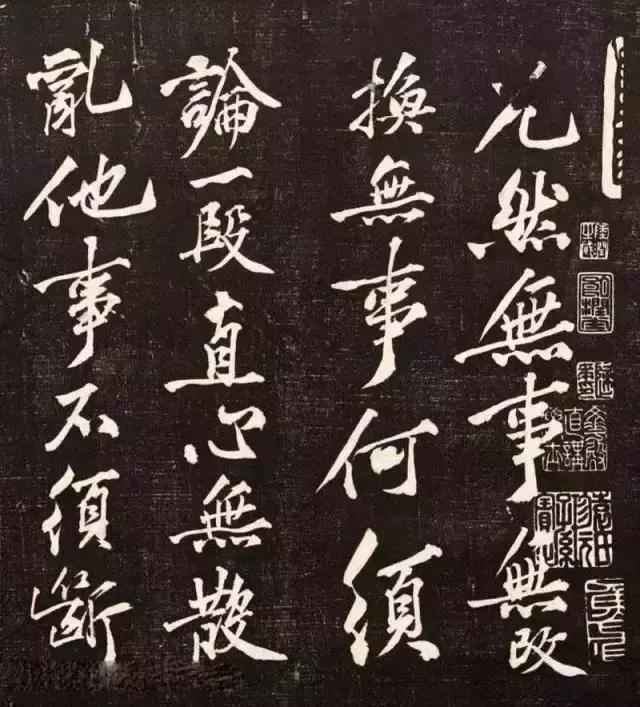 兀然無事無改
換無事何須
論一段直心無散
亂他事不須斷